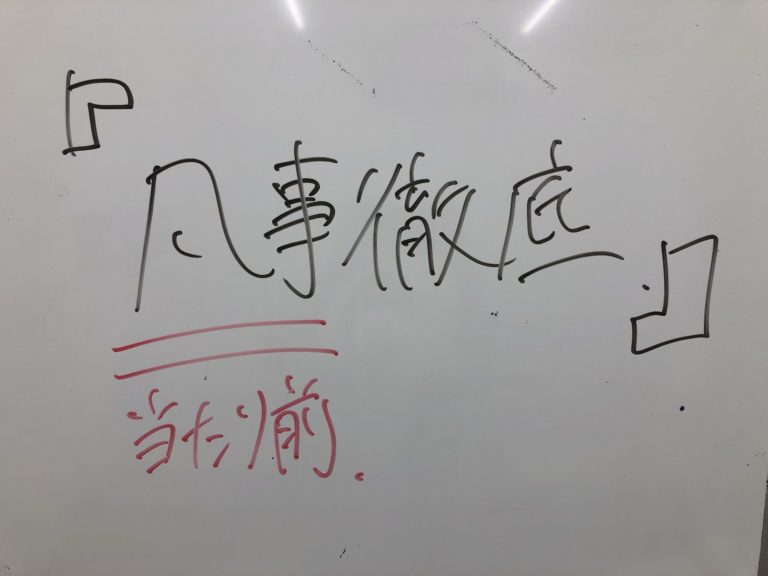 『凡事徹底』
当たり前.